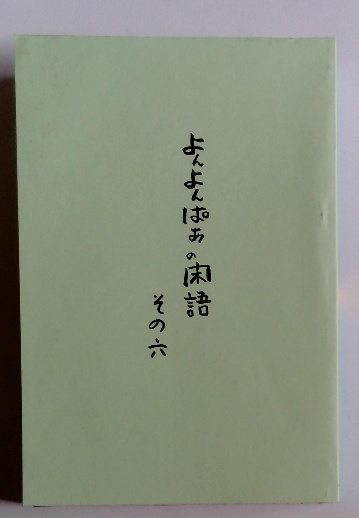 よんよんぱあの閑語
その六